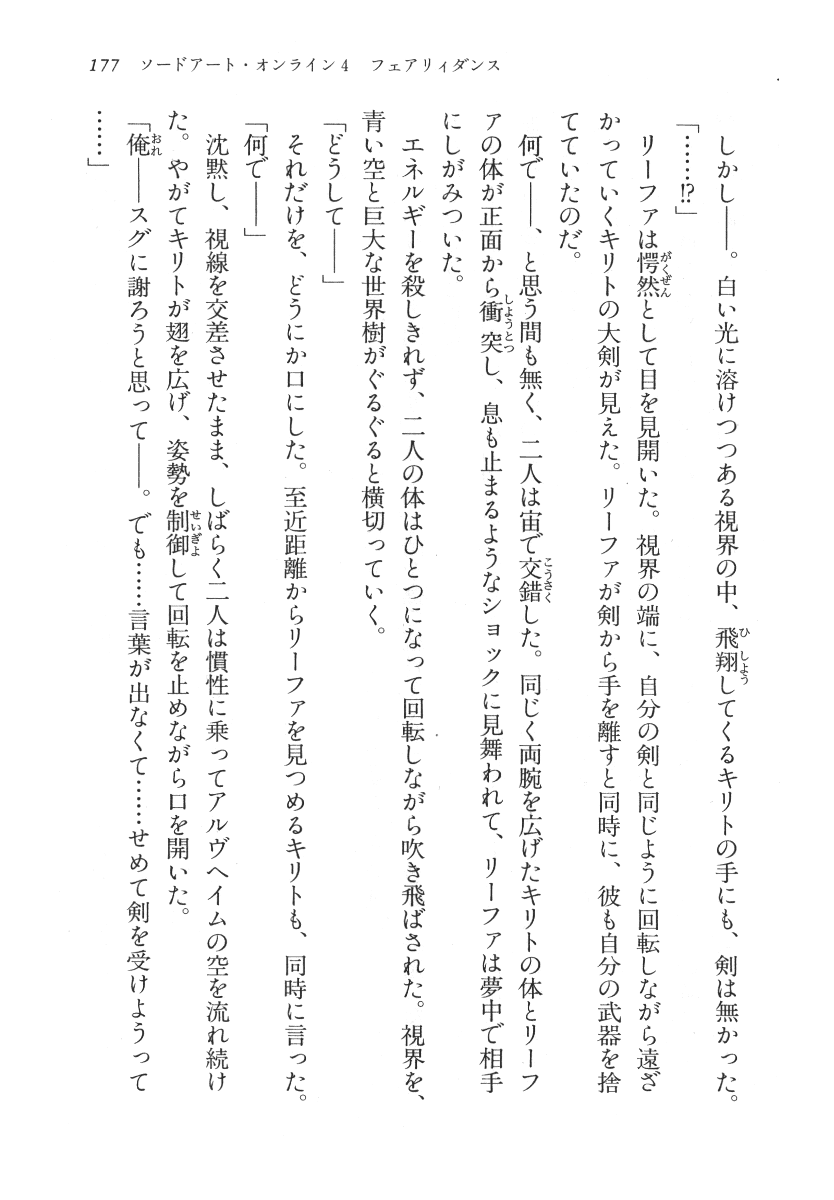 177　ソードアート・オンライン4　フェアリィダンス
　しかし――。白い光に溶けつつある視界の中、飛翔してくるキリトの手にも、剣は無かった。
「……!?」
　リーファは愕然として目を見開いた。視界の端に、自分の剣と同じように回転しながら遠ざ
かっていくキリトの大剣が見えた。リーファが剣から手を離すと同時に、彼も自分の武器を捨
てていたのだ。
　何で――、と思う間も無く、二人は宙で交錯した。同じく両腕を広げたキリトの体とリーフ
ァの体が正面から衝突し、息も止まるようなショックに見舞われて、リーファは夢中で相手
にしがみついた。
　エネルギーを殺しきれず、二人の体はひとつになって回転しながら吹き飛ばされた。視界を、
青い空と巨大な世界樹がぐるぐると横切っていく。
「どうして――」
　それだけを、どうにか口にした。至近距離からリーファを見つめるキリトも、同時に言った。
「何で――」
　沈黙し、視線を交差させたまま、しばらく二人は慣性に乗ってアルヴヘイムの空を流れ続け
た。やがてキリトが翅を広げ、姿勢を制御して回転を止めながら口を開いた。
「俺――スグに謝ろうと思って――。でも……言葉が出なくて……せめて剣を受けようって
……」